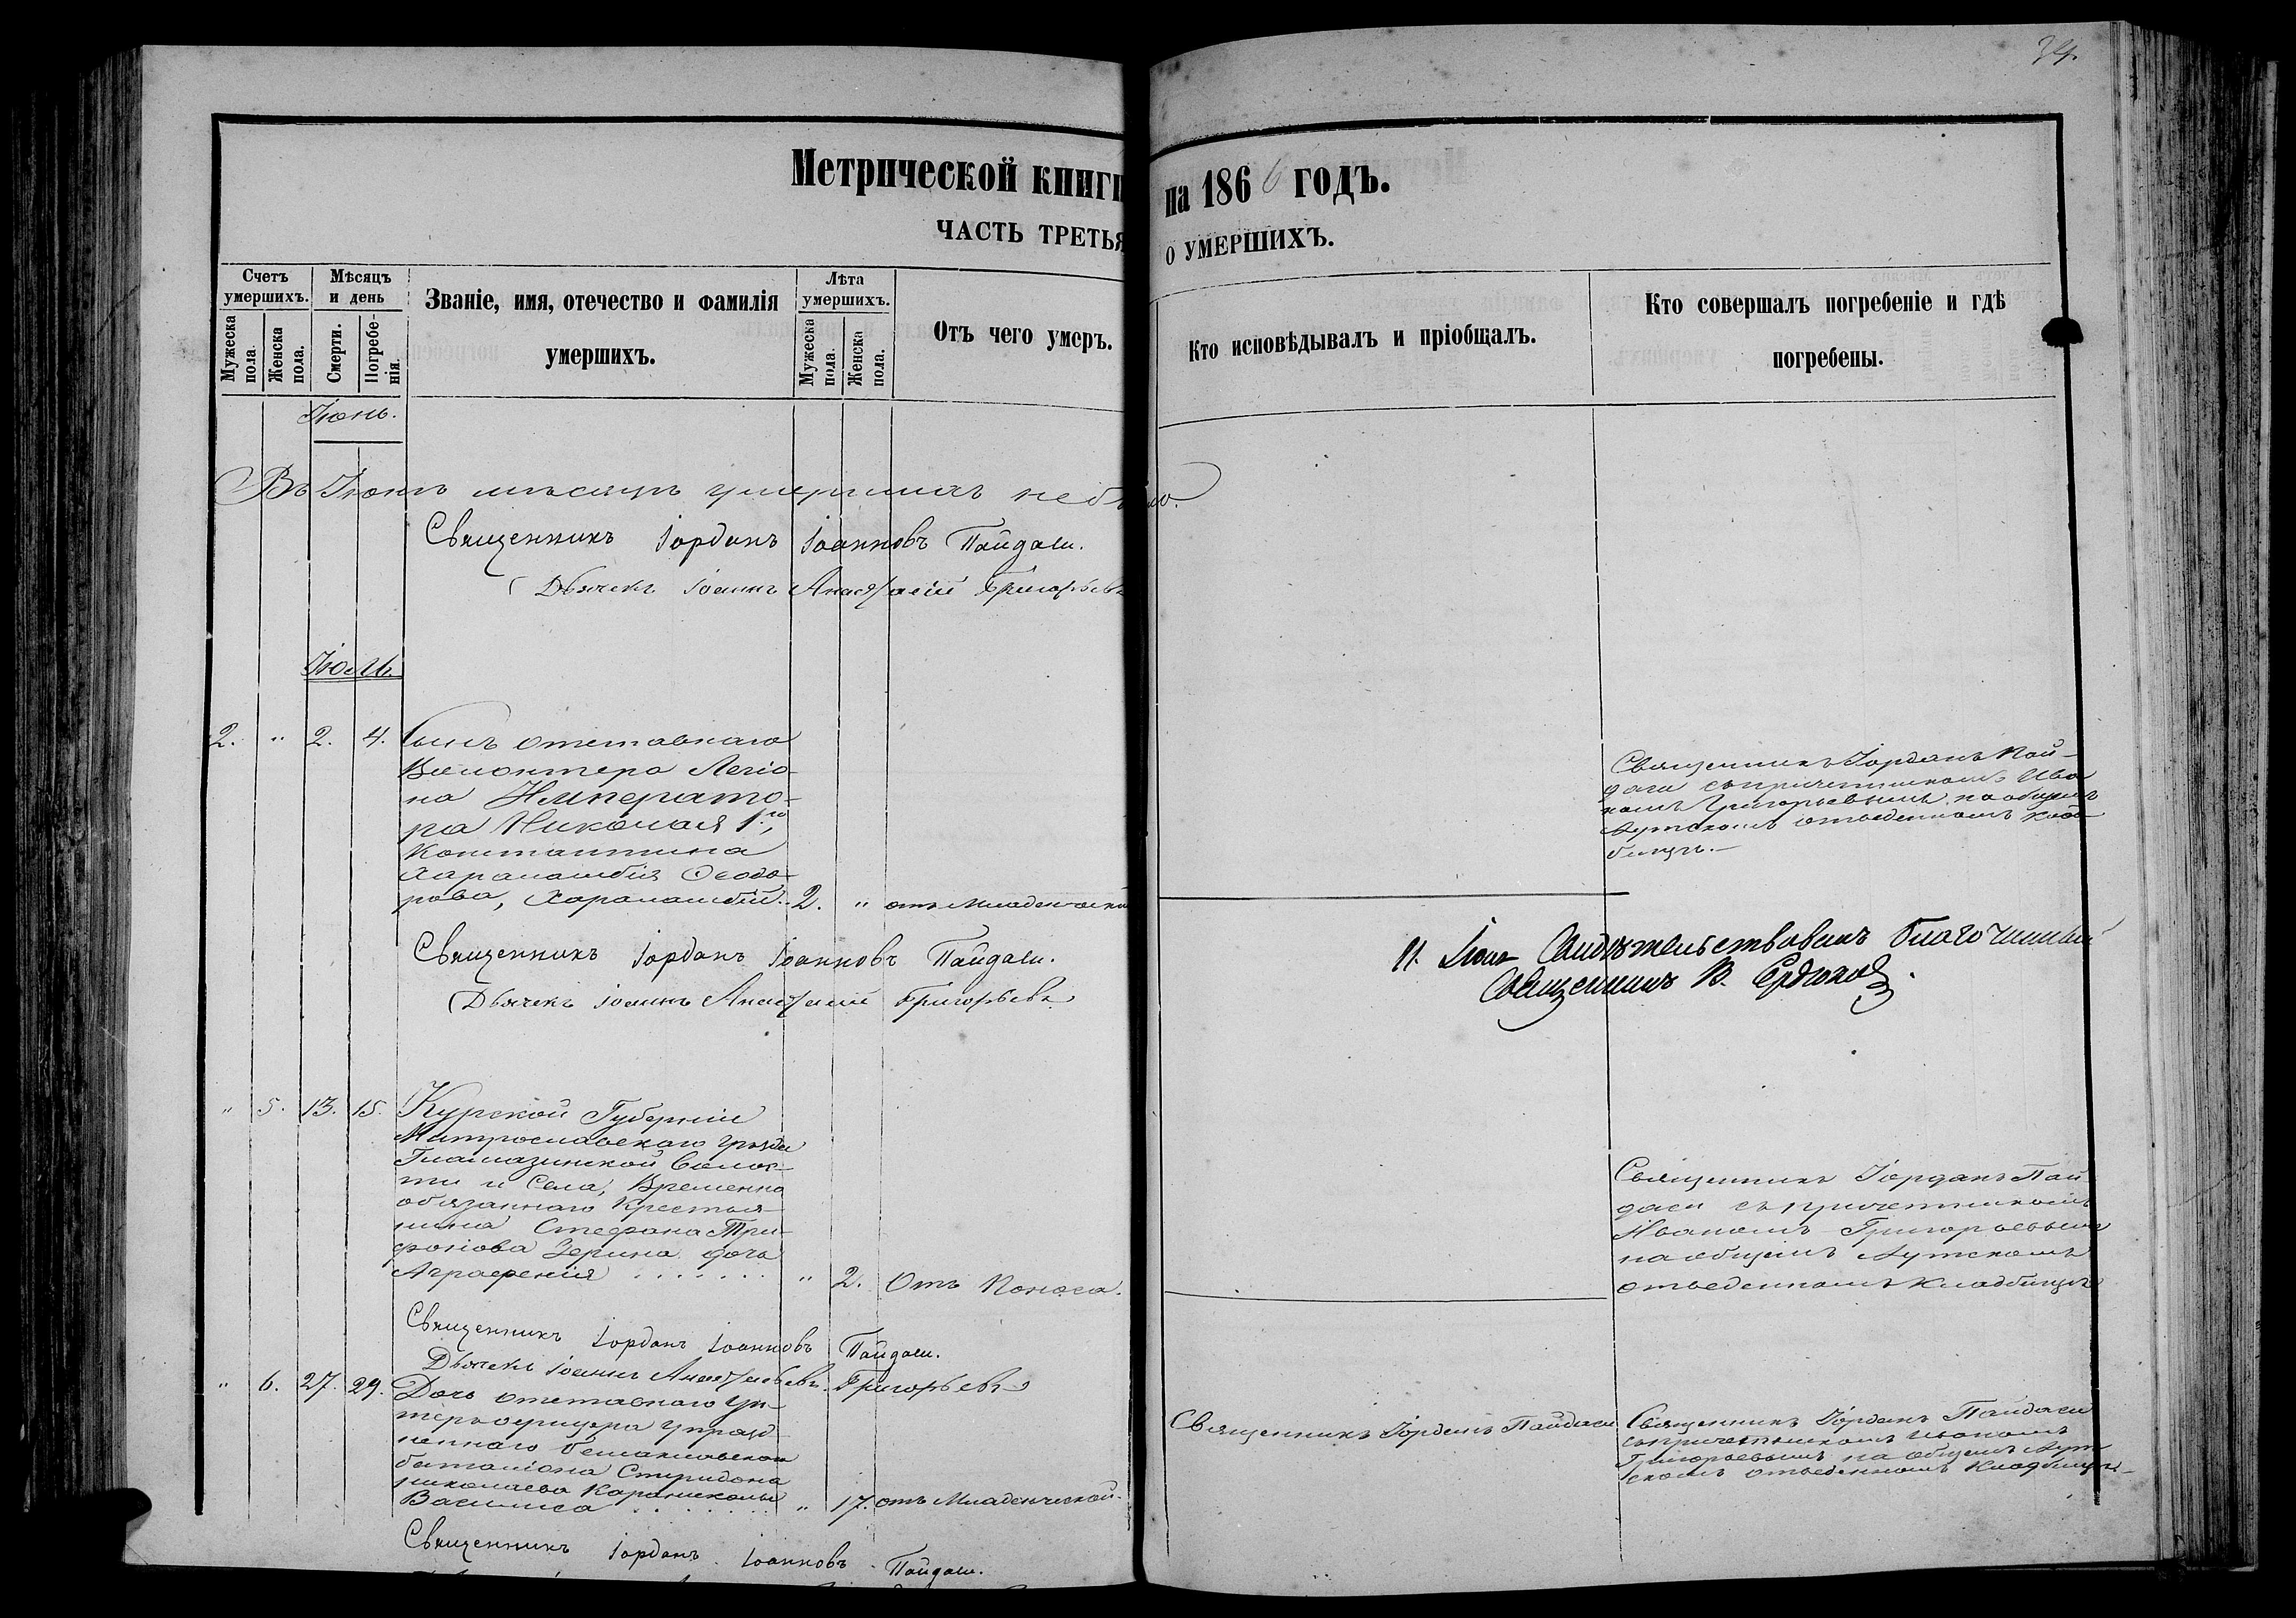 34.
Метрической книги на 1866 годъ.
ЧАСТЬ ТРЕТЬЯ О УМЕРШИХЪ.
Счетъ умершихъ.
Мѣсяцъ и день
Званіе, имя, отечество и фамилія умершихъ.
Лѣта умершихъ.
Отъ чего умеръ.
Кто исповѣдывалъ и пріобщалъ.
Кто совершалъ погребеніе и гдѣ погребены.
Мужеска пола.
Женска пола.
Смерти.
Погребенія.
Мужеска пола.
Женска пола.
Іюнь.
Въ Іюнѣ мѣсяцѣ умершихъ небыло.
Священникъ Іорданъ Іоанновъ Пайдаси.
Дьячекъ Іоаннъ Григорьевъ
Іюль.
2. " 2. 4. Сынъ отставнаго
Волонтера Легіо-
на Императо-
ра Николая 1го,
Константина
Харалампія Ѳеодо-
рова, Харалампій. 2. " отъ Младенческой
Священникъ Іорданъ Пай-
даси съ причетникомъ Ива
номъ Григорьевымъ на общемъ
Аутскомъ отведенномъ клад-
бищѣ.
Священникъ Іорданъ Іоанновъ Пайдаси.
Дьячекъ Іоаннъ Григорьевъ
11. Свидѣтельствовалъ благочинный
Священникъ В.
" 5. 13. 15. Курской Губерніи
уѣзда
Волос-
ти и Села, Временно
обязаннаго Крестья-
нина Стефана Три-
фонова Зерина дочь
Аграфенія " 2. Отъ Поноса.
Священникъ Іорданъ Пай
даси съ причетникомъ
Иваномъ Григорьевымъ
на общемъ Аутскомъ
отведенномъ кладбищѣ
Священникъ Іорданъ Іоанновъ Пайдаси.
Дьячекъ Іоаннъ Григорьевъ
" 6. 27. 29. Дочь отставнаго Ун-
теръ офицера Упразд-
неннаго Балаклавскаго
баталіона Спиридона
Николаева
Василиса " 17. отъ Младенческой.
Священникъ Іорданъ Пайдаси
Священникъ Іорданъ Пайдаси
съ причетникомъ Иваномъ
Григорьевымъ на общемъ Аут
скомъ отведенномъ Кладбищѣ
Священникъ Іорданъ Іоанновъ Пайдаси.